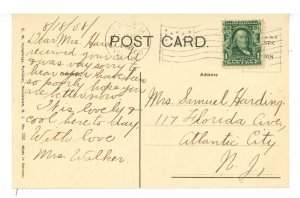 8/18/08
Dear Mrs. Harding
received your card
was very sorry
hear
so poorly hope you
are better now
It is lovely &
cool here to day
With love
Mrs. Walker
POST CARD.
Address
Mrs. Samuel Harding.
117 Florida Ave,
Atlantic City
N. J.
Made in Germany